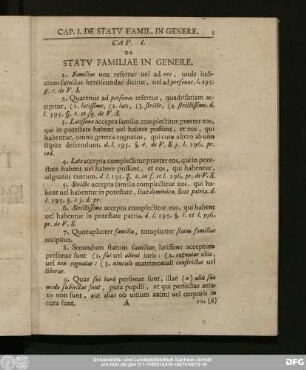 CAP. I. DE STATV FAMIL. IN GENERE. 1
CAP. I.
DE
STATV FAMILIAE IN GENERE.
1. Familiae uox refertur uel ad res, unde iudicium familiae herciscundae dicitur, uel ad personas. l. 195.
§. 1. de V. S.
2. Quatenus ad personas refertur, quadrifariam accipitur, (1. latissime, (2. late, (3. stricte, (4 strictissime. d.
l. 195. §. 2. et sq. de V. S.
3. Latissime accepta familia complectitur praeter eos,
qui in potestate habent uel habere possunt, et eos, qui
habentur, omnis generis cognatos, qui
stipite descendunt. d. l. 195. §. 4. de V. S. l. 196. pr.
eod.
4. Late accepta complectitur praeter eos, qui in potestate habent uel habere possunt, et eos, qui habentur,
adgnatos tantum. d. l. 195. §. 2. in f. et l. 196. pr. de V. S.
5. Stricte accepta familia complectitur eos, qui habent uel habentur in potestate, siue dominica, siue patria. d.
l. 195. §. 2. pr.
6. Strictissime accepta complectitur eos, qui habent
uel habentur in potestate patria. d. l. 195. §. 2. et l. 196.
pr. de V. S.
7. Quotupliciter familia, totupliciter status familiae
accipitur.
8. Secundum statum familiae latissime acceptum
personae sunt (1. sui uel alieni iuris: (2. cognatae aliis,
uel non cognatae: (3. uinculo matrimoniali constrictae uel
liberae.
9. Quae sui iuris personae sunt, illae (a) aliis
modo subiectae sunt, puta pupilli, et qui perfectae aetatis non sunt, aut alias ob uitium animi uel corporis in
cura sunt. A
Universitäts- und Landesbibliothek Sachsen-Anhalt